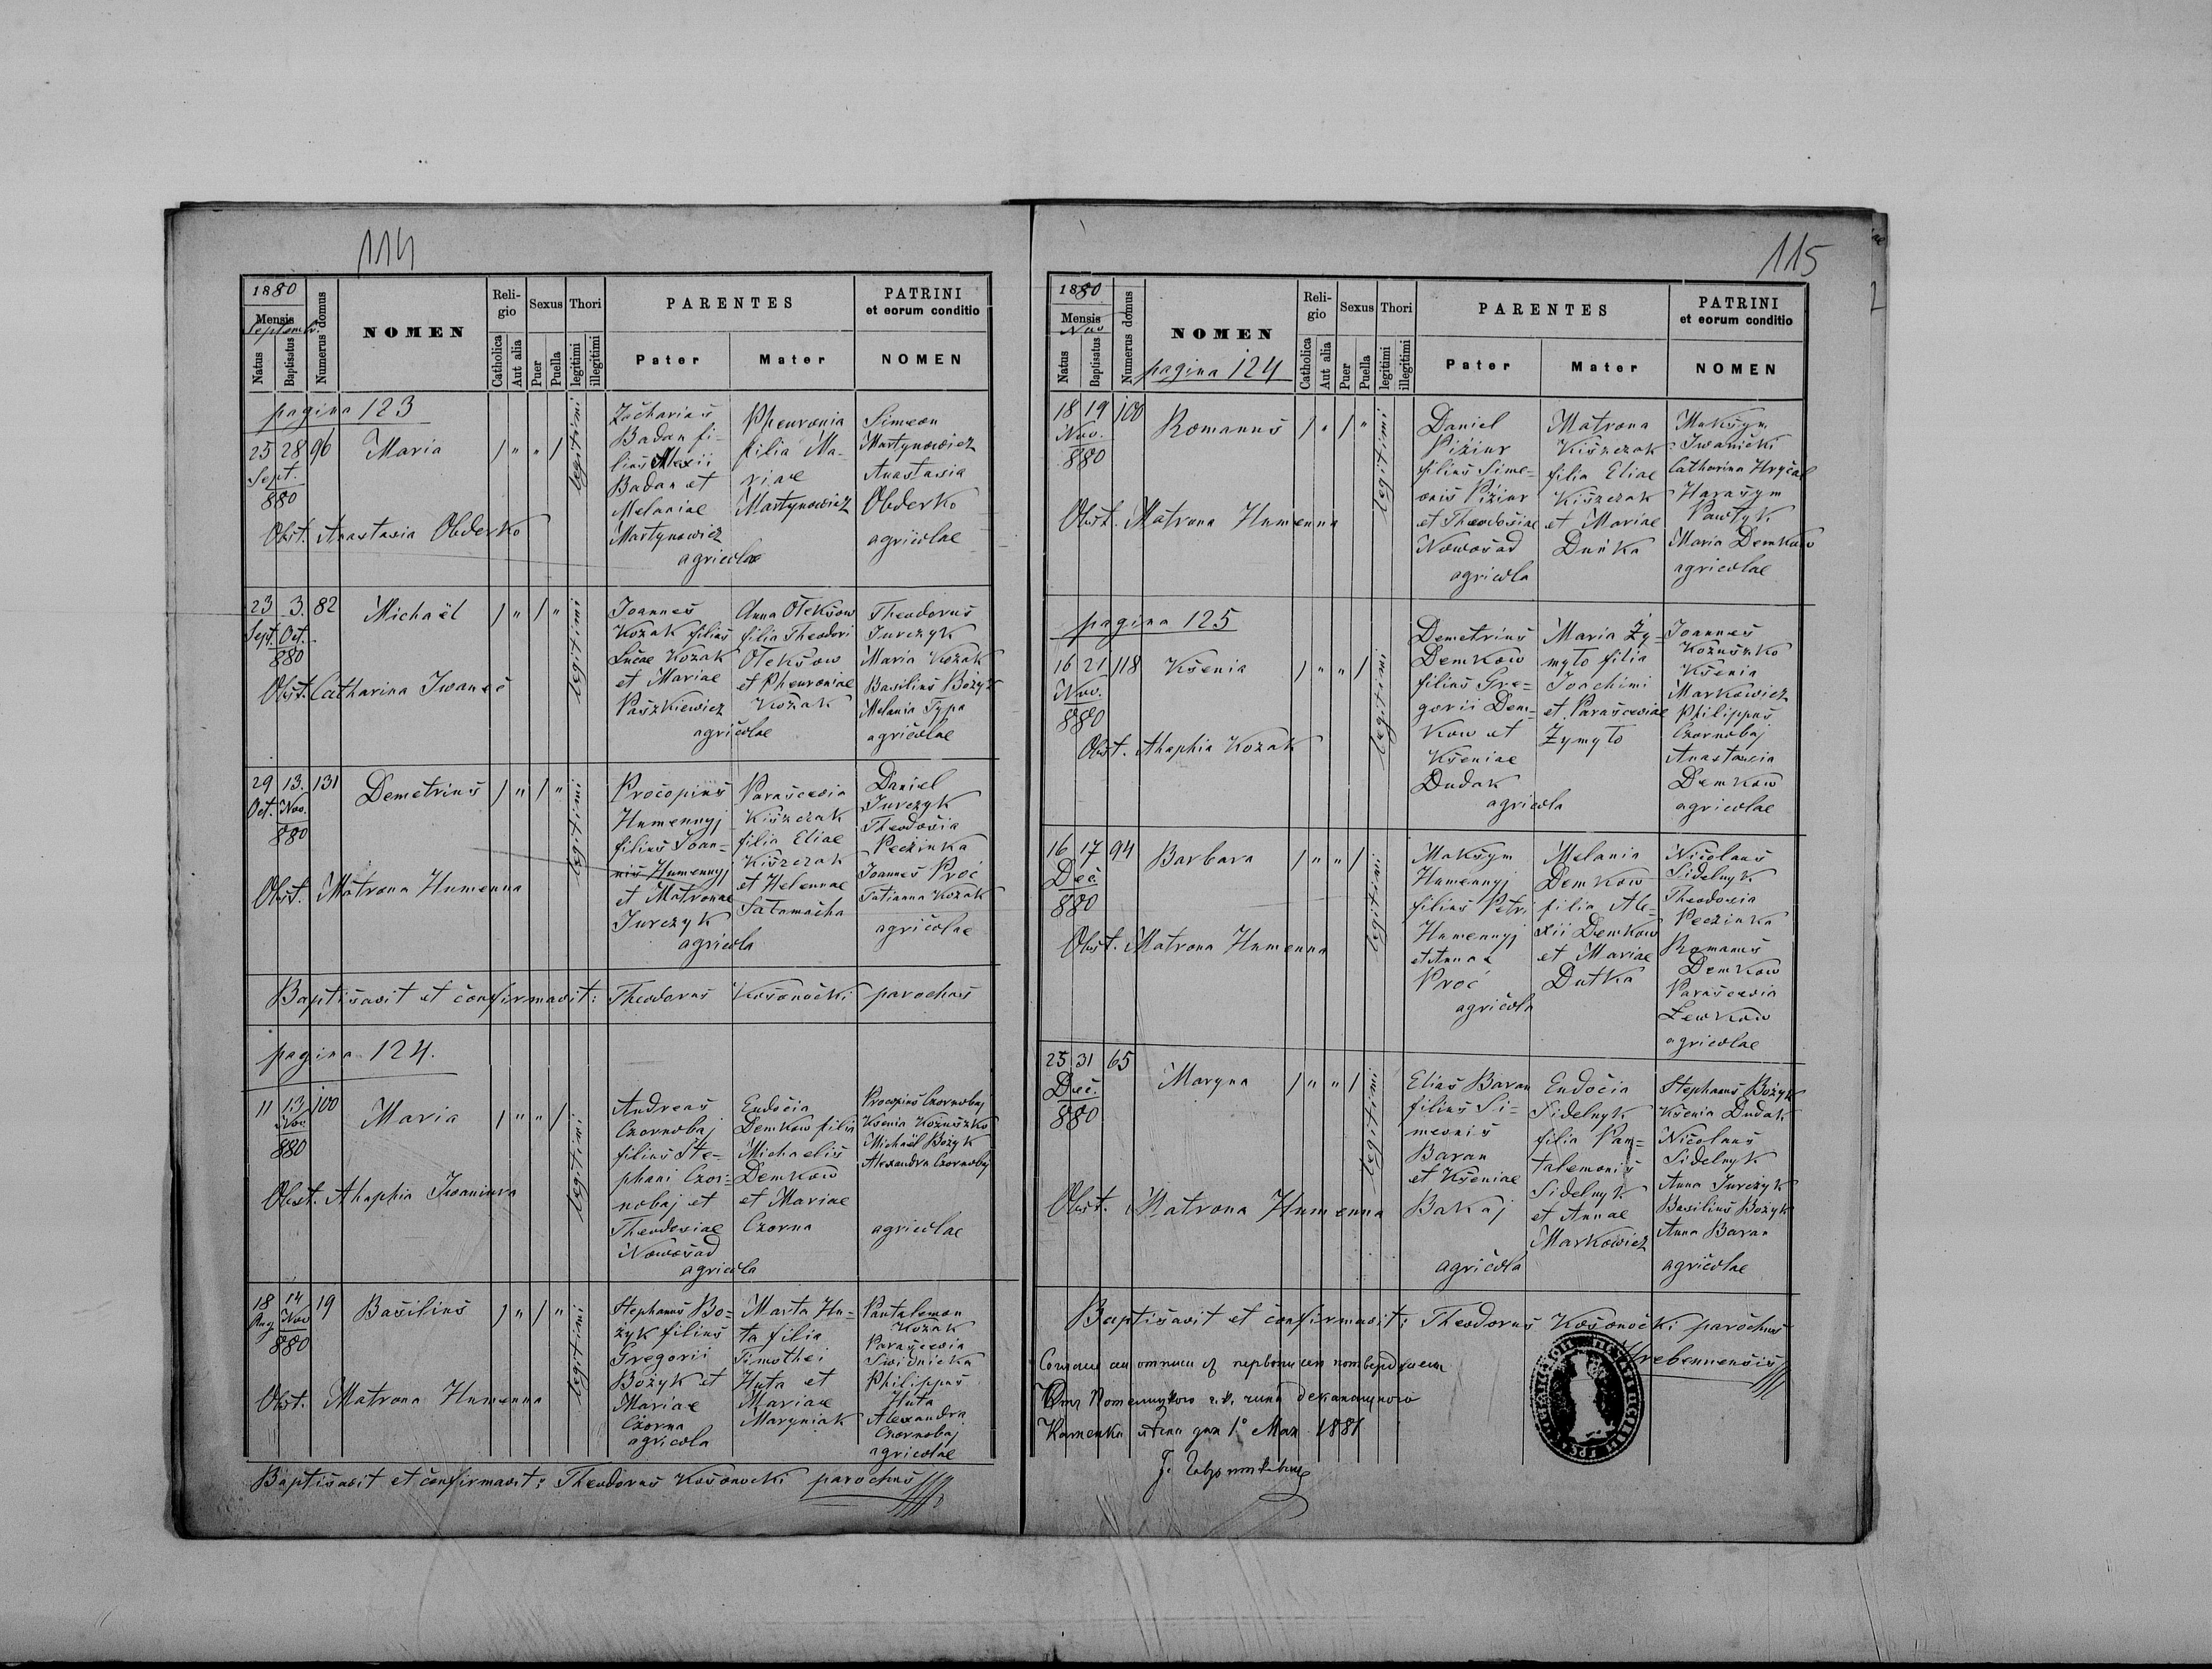 114
1880
Mensis
Septembr.
Natus
Baptisatus
Numerus domus
NOMEN
Reli-
gio
Catholica
Aut alia
Sexus
Puer
Puella
Thori
legitimi
illegitimi
PARENTES
Pater
Mater
PATRINI
et eorum conditio
NOMEN
pagina 123
25 28 96 Maria / " " /
Sept.
880
Obst. Anastasia Obderko
legitimi
Zacharias
Badan fi-
lius Alexii
Badan et
Melaniae
Martynowicz
agricolae
Pheuronia
filia Ma-
riae
Martynowicz
Simeon
Martynowicz
Anastasia
Obderko
agricolae
23 3. 82 Michaël / " / "
Sept. Oct.
880
Obst. Catharina Iwaneć
legitimi
Joannes
Kozak filius
Lucae Kozak
et Mariae
Paszkiewicz
agricolae
Anna Oleksow
filia Theodori
Oleksow
et Pheuroniae
Kozak
Theodorus
Jurczyk
Maria Kozak
Basilius Bożyk
Melania Typa
agricolae
29 13. 131 Demetrius / " / "
Oct. Nov.
880
Obst. Matrona Humenna
legitimi
Procopius
Humennyj
filius Joan-
nis Humennyj
et Matronae
Jurczyk
agricola
Parascevia
Kiszczak
filia Eliae
Kiszczak
et Helennae
Sałamacha
Daniel
Jurczyk
Theodosia
Peczinka
Joannes Proć
Tatianna Kozak
agricolae
Baptisavit et confirmavit: Theodorus Kosonocki parochus
pagina 124.
11 13 100 Maria / " " /
Nov.
880
Obst. Ahaphia Iwaniura
legitimi
Andreas
Czornobaj
filius Ste-
phani Czor-
nobaj et
Theodosiae
Nowosad
agricola
Eudocia
Demkow filia
Michaelis
Demkow
et Mariae
Czorna
Procopius Czornobaj
Ksenia Kożuszko
Michaël Bożyk
Alexandra Czornobaj
agricolae
18 14 19 Basilius / " / "
Aug Nov
880
Obst. Matrona Humenna
legitimi
Stephanus Bo-
żyk filius
Gregorii
Bożyk et
Mariae
Czorna
agricola
Marta Hu-
ta filia
Timothei
Huta et
Mariae
Maryniak
Pantalemon
Kozak
Parascevia
Swidnicka
Philippus
Huta
Alexandra
Czornobaj
agricolae
Baptisavit et confirmavit: Theodorus Kosonocki parochus
115
1880
Mensis
Nov
Natus
Baptisatus
Numerus domus
NOMEN
pagina 124
Reli-
gio
Catholica
Aut alia
Sexus
Puer
Puella
Thori
legitimi
illegitimi
PARENTES
Pater
Mater
PATRINI
et eorum conditio
NOMEN
18 19 100 Romanus / " / "
Nov.
880
Obst. Matrona Humenna
legitimi
Daniel
Piżiur
filius Sime-
onis Piżiur
et Theodosiae
Nowosad
agricola
Matrona
Kiszczak
filia Eliae
Kiszczak
et Mariae
Duńka
Maksym
Iwanicki
Catharina Hryćak
Harasym
Pawłyk
Maria Demkow
agricolae
pagina 125
16 21 118 Ksenia / " " /
Nov.
880
Obst. Ahaphia Kozak
legitimi
Demetrius
Demkow
filius Gre-
gorii Dem-
kow et
Kseniae
Dudak
agricola
Maria Ży-
myło filia
Joachimi
et Parasceviae
Żymyło
Joannes
Kożuszko
Ksenia
Markowicz
Philippus
Czornobaj
Anastasia
Demkow
agricolae
16 17 94 Barbara / " " /
Dec.
880
Obst. Matrona Humenna
legitimi
Maksym
Humennyj
filius Petri
Humennyj
et Annae
Proć
agricola
Melania
Demkow
filia Ale-
xii Demkow
et Mariae
Dutka
Nicolaus
Sidelnyk
Theodosia
Peczinka
Romanus
Demkow
Parascevia
Lewkow
agricolae
25 31 65 Maryna / " " /
Dec.
880
Obst. Matrona Humenna
legitimi
Elias Baran
filius Si-
meonis
Baran
et Kseniae
Bakaj
agricola
Eudocia
Sidelnyk
filia Pan-
talemonis
Sidelnyk
et Annae
Markowicz
Stephanus Bożyk
Ksenia Dudak
Nicolaus
Sidelnyk
Anna Jurczyk
Basilius Bożyk
Anna Baran
agricolae
Baptisavit et confirmavit: Theodorus Kosonocki parochus
Hrebennensis
1881